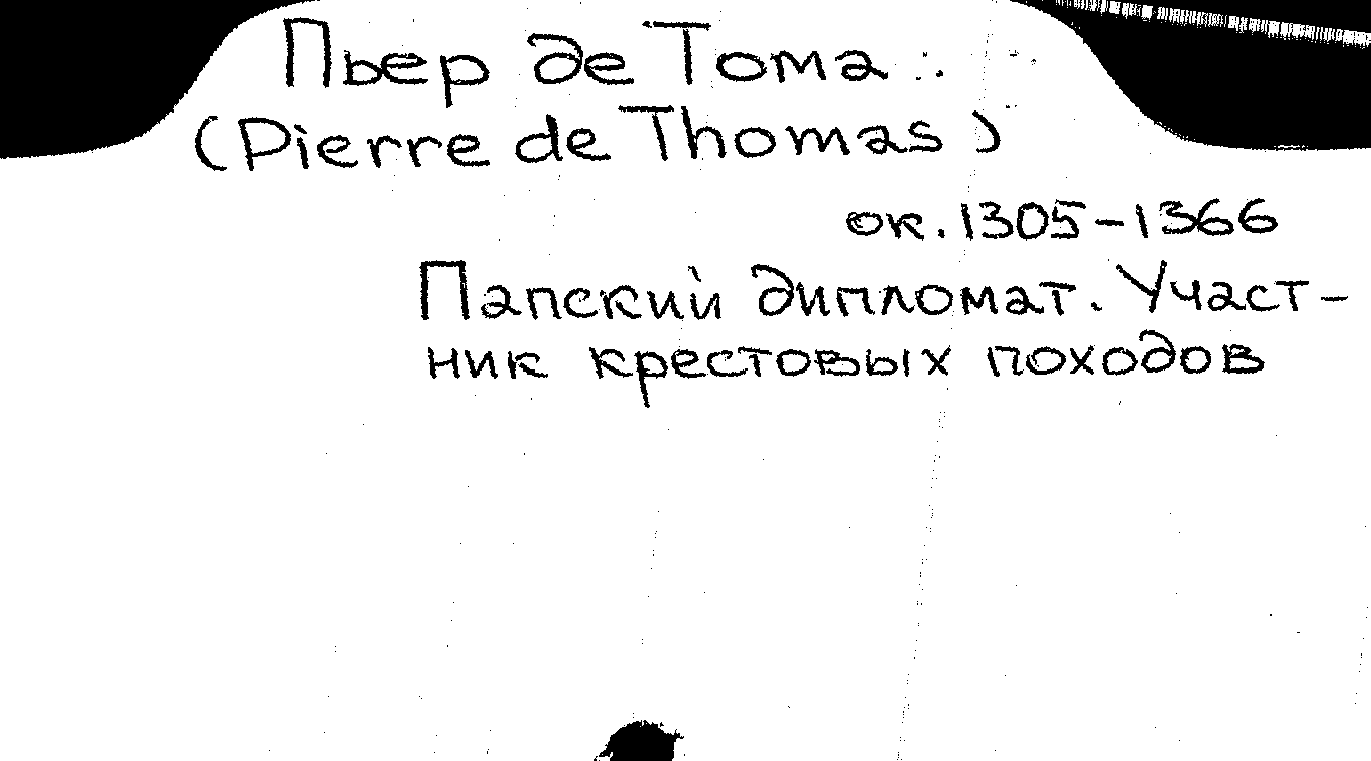 Пьер де Тома
(Pierre de Thomas)
ок. 1305-1366
Папский дипломат. Участ-
ник крестовых походов